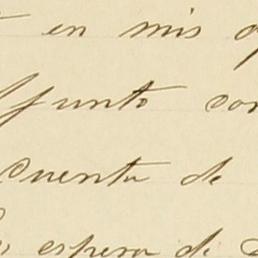 en mis
Junto con
cuenta de
espera de